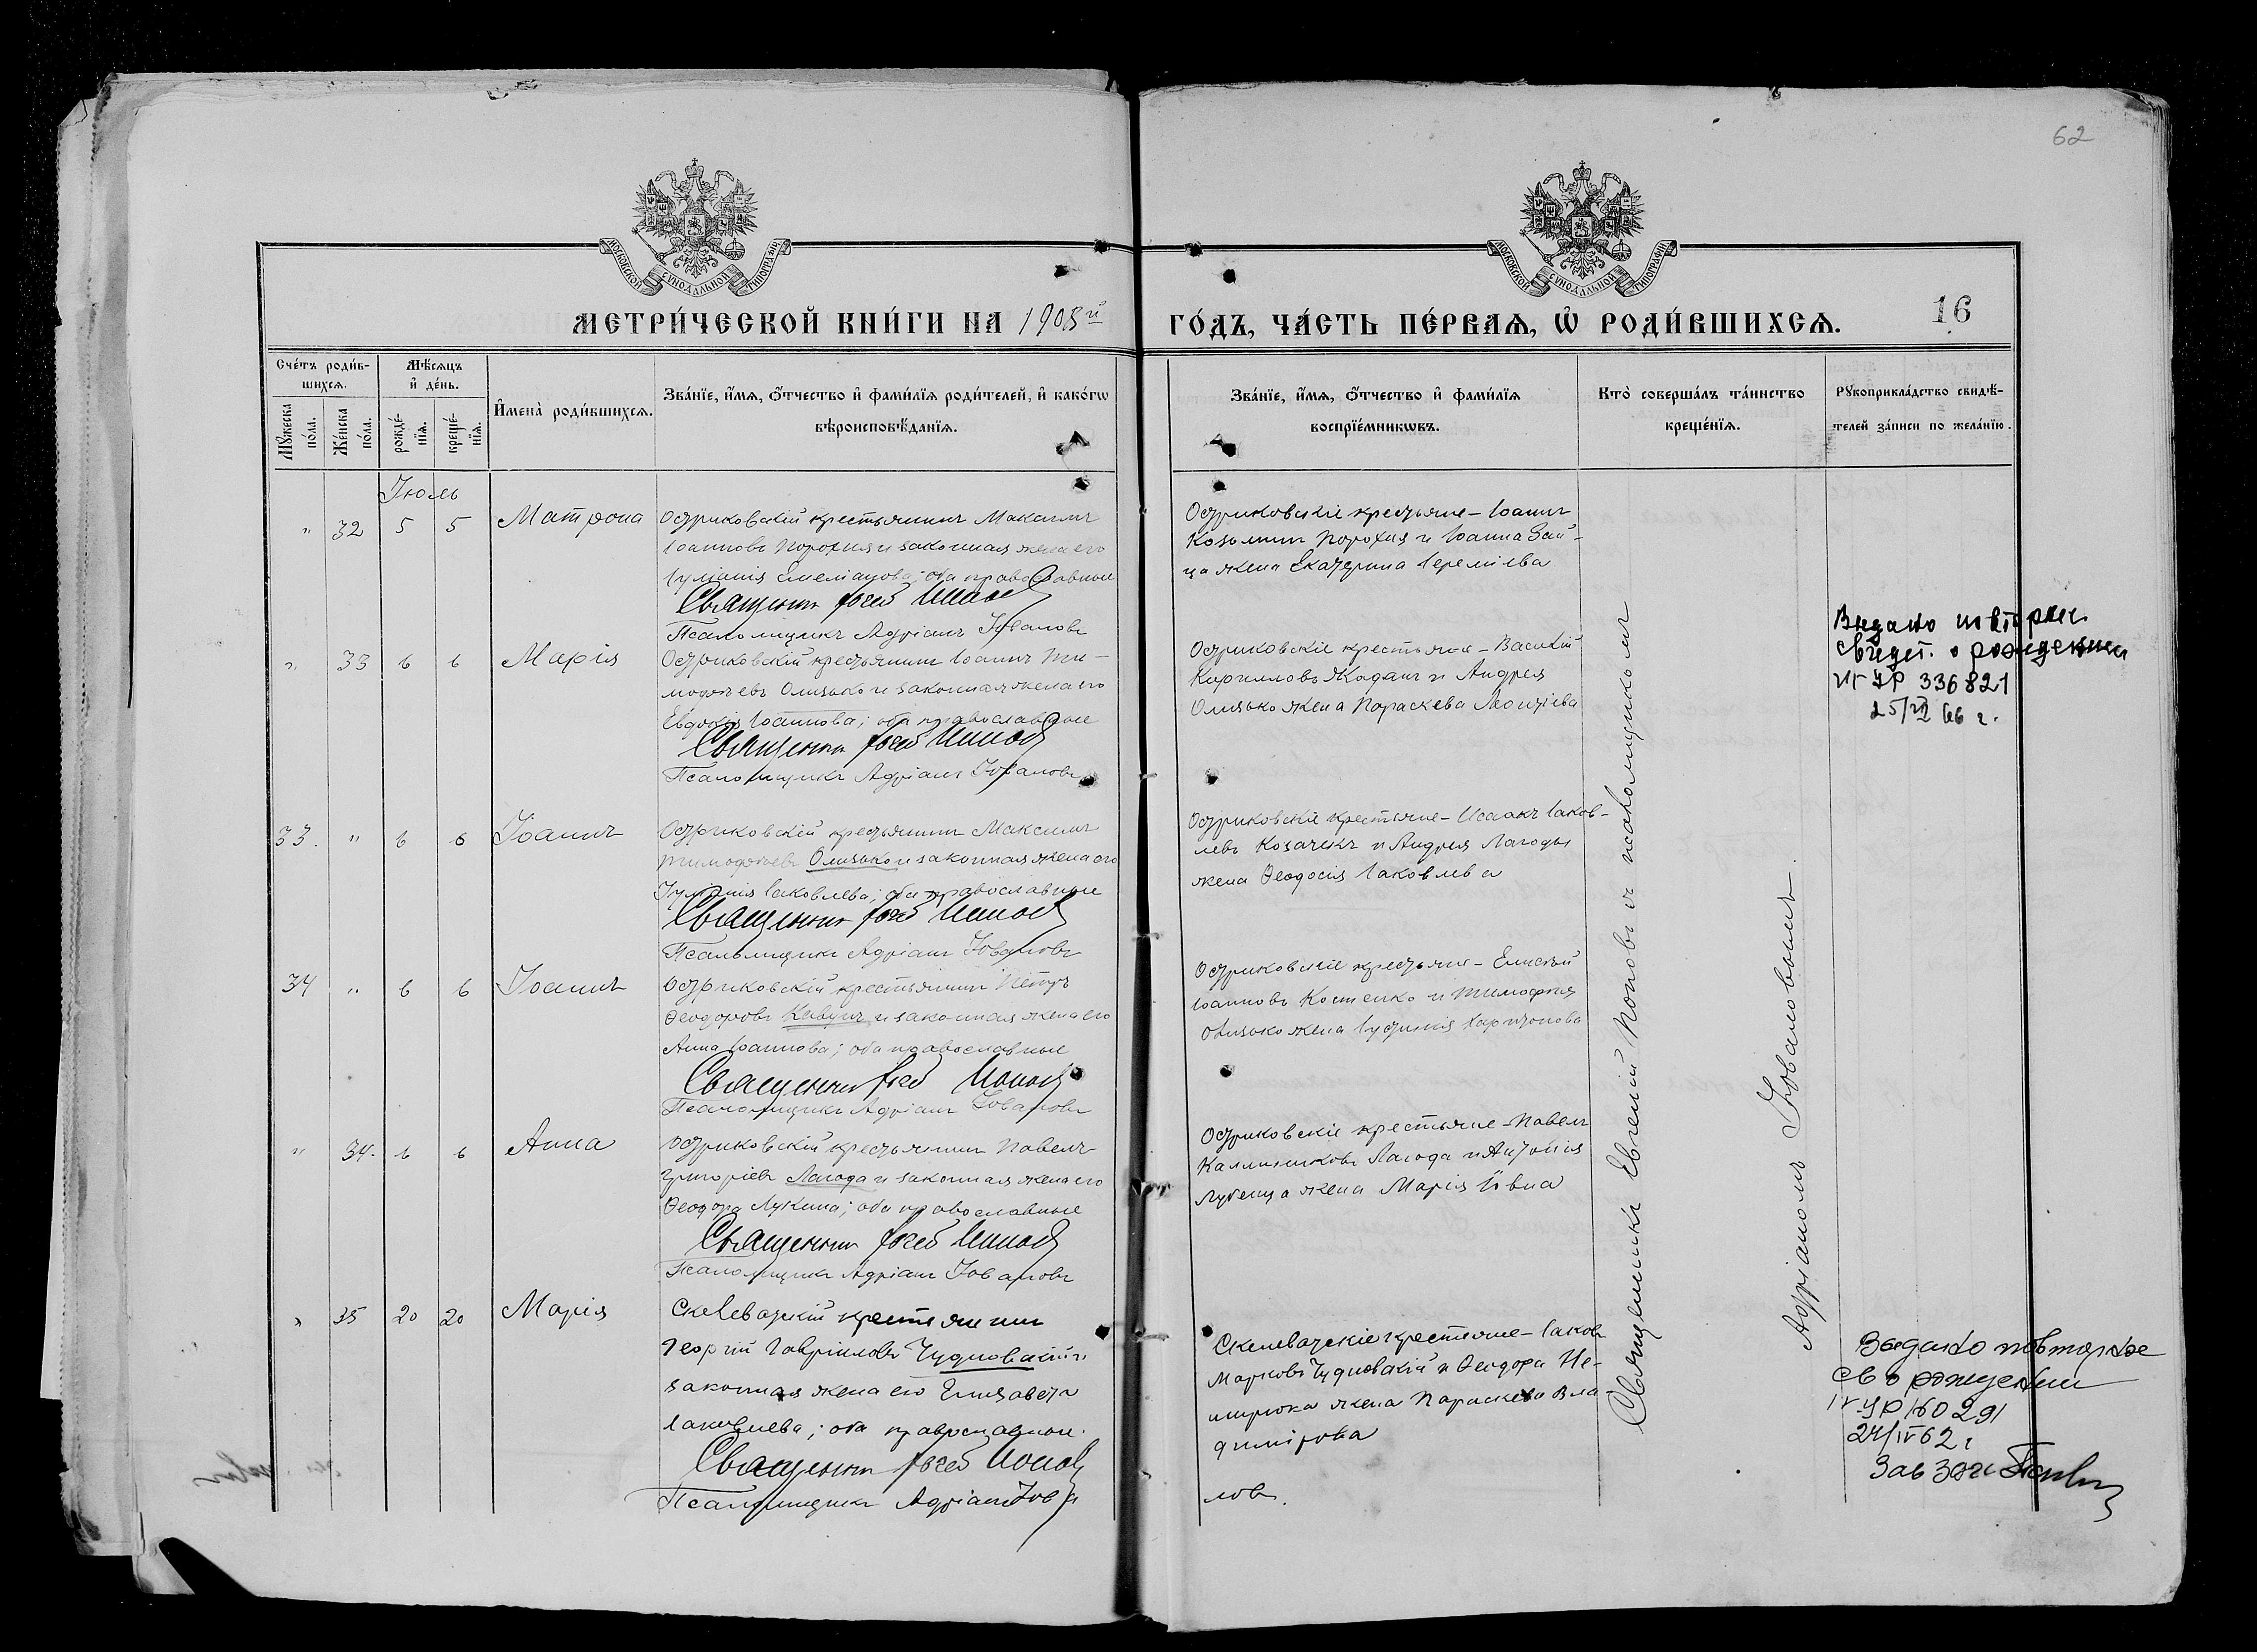 62
МОСКОВСКОЙ СѴНОДАЛЬНОЙ ТИПОГРАФІИ
МОСКОВСКОЙ СѴНОДАЛЬНОЙ ТИПОГРАФІИ
МЕТРИ́ЧЕСКОЙ КНИ́ГИ НА 1905й
ГО́ДЪ, ЧА́СТЬ ПЕ́РВАЯ, Ѡ҆ РОДИ́ВШИХСЯ.
16
Сче́тъ роди́в-
шихся.
Мѣ́сяцъ
и҆ де́нь.
Мꙋ́жеска
по́ла.
Же́нска
по́ла.
рожде́-
нїя.
креще́-
нїя.
И҆мена̀ роди́вшихся.
Зва́нїе, и҆́мя, ѻ҆́тчество и҆ фами́лїя роди́телей, и҆ како́гѡ
вѣроисповѣ́данїя.
Зва́нїе, и҆́мя, ѻ҆́тчество и҆ фами́лїя
воспрїе́мникѡвъ.
Кто̀ соверша́лъ та́инство
креще́нїя.
Рꙋкоприкла́дство свидѣ́-
телей за́писи по жела́нїю.
Іюль
" 32 5 5 Матрона
Остриковскій крестьянинъ Максимъ
Іоанновъ Порохня и законная жена его
Іуліанія Емеліанова; оба православные
Священникъ Попов
Псаломщикъ Адріанъ Іовановъ
Остриковскіе крестьяне - Іоаннъ
Козьминъ Порохня и Іоанна Зай-
ца жена Екатерина Іереміева
" 33 6 6 Марія
Остриковскій крестьянинъ Іоаннъ Ти-
мофеевъ Олизько и законная жена его
Евдокія Іоаннова; оба православные
Священникъ Попов
Псаломщикъ Адріанъ Іовановъ
Остриковскіе крестьяне - Василій
Кирилловъ Жаданъ и Андрея
Олизько жена Параскева Леонтіева
Выдано повторн.
свидет. о рождении
УР 336821
25/VI 66 г.
33. " 6 6 Іоаннъ
Остриковскій крестьянинъ Максимъ
Тимофеевъ Олизько и законная жена его
Іуліанія Іаковлева; оба православные
Священникъ Попов
Псаломщикъ Адріанъ Іовановъ
Остриковскіе крестьяне - Исаакъ Іаков-
левъ Козачекъ и Андрея Лагоды
жена Ѳеодосія Іаковлева
34 " 6 6 Іоаннъ
Остриковскій крестьянинъ Петръ
Ѳеодоровъ Кавунъ и законная жена его
Анна Іоаннова; оба православные
Священникъ Попов
Псаломщикъ Адріанъ Іовановъ
Остриковскіе крестьяне - Елисей
Іоанновъ Костенко и Тимофея
Олизько жена Іустинія Харитонова
" 34. 6 6 Анна
Остриковскій крестьянинъ Павелъ
Григоріевъ Лагода и законная жена его
Ѳеодора Лукина; оба православные
Священникъ Попов
Псаломщикъ Адріанъ Іовановъ
Остриковскіе крестьяне - Павелъ
Каллиниковъ Лагода и Антонія
Лубенца жена Марія Іовна
" 35 20 20 Марія
Скелеватскій крестьянинъ
Георгій Гавріиловъ Чудновскій и
законная жена его Елизавета
Іаковлева; оба православные.
Священникъ Попов
Псаломщикъ Адріанъ Іова
лов.
Скелеватскіе крестьяне - Іаковъ
Марковъ Чудновскій и Ѳеодора
жена Параскева Вла
димірова
Священникъ Евгеній Поповъ и псаломщикомъ
Адріаномъ Іовановымъ.
Выдано повторное
св о рождении
IV УР 160291
24/IV 62 г